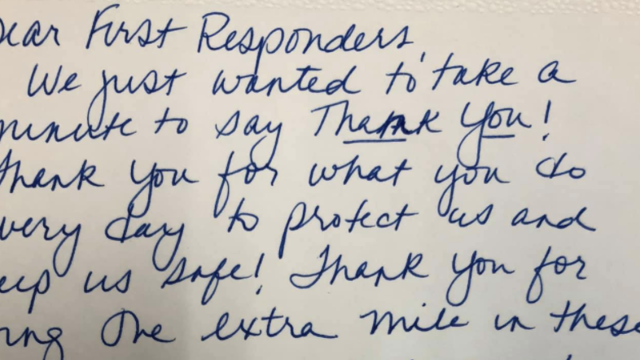 ear First Responders,
We just wanted to take a
minute to say Thank You!
Thank you for what you do
very day to protect us and
eep us safe! Thank you for
ing the extra mile in these